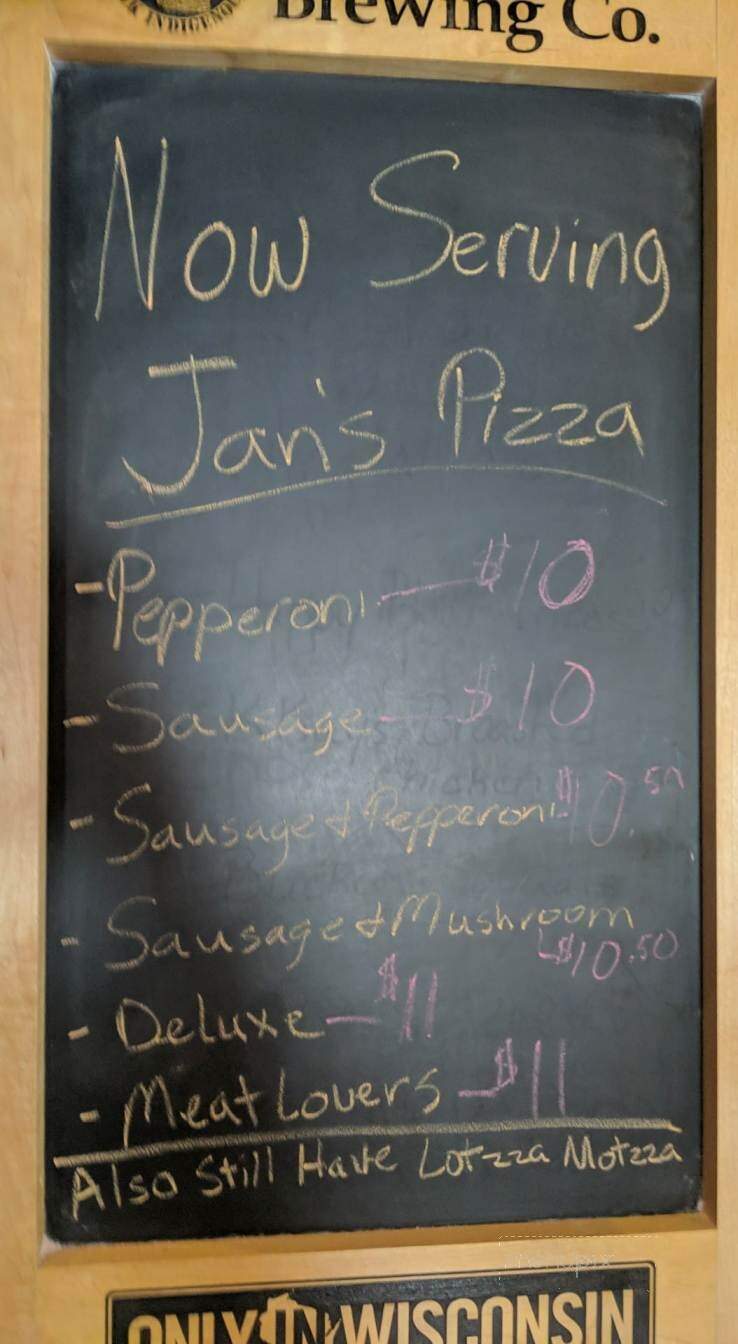 INDIGENOUS
Brewing Co.
Now Serving
Jan's Pizza
-Pepperoni - $10
- Sausage - $10
- Sausage & Pepperoni $10.50
- Sausage & Mushroom
$10.50
- Deluxe - $11
- Meat Lovers - $11
Also Still Have Lotzza Motzza
ONLY IN WISCONSIN